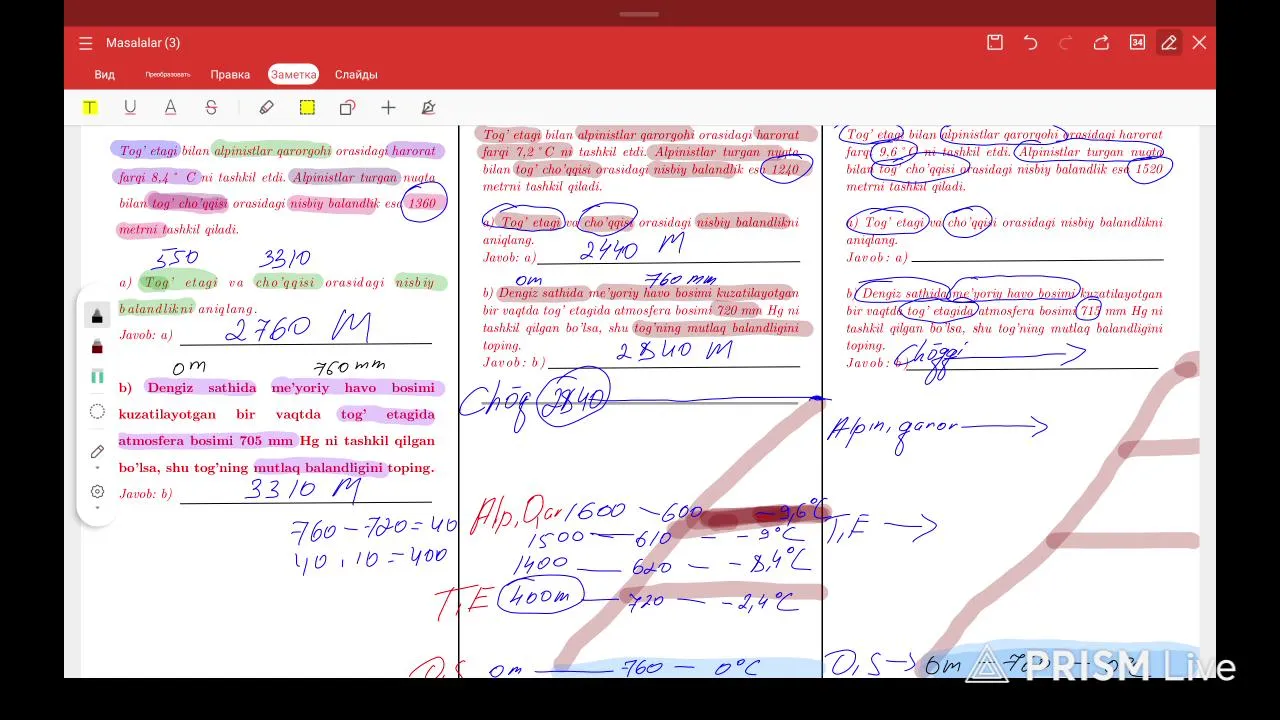 Masalalar (3)
34
Вид
Преобразовать
Правка
Заметка
Слайды
T U A S
Tog' etagi bilan alpinistlar qarorgohi orasidagi harorat
farqi 8,4° C ni tashkil etdi. Alpinistlar turgan nuqta
bilan tog' cho'qqisi orasidagi nisbiy balandlik esa 1360
metrni tashkil qiladi.
550 3310
a) Tog' etagi va cho'qqisi orasidagi nisbiy
balandlikni aniqlang.
Javob: a) 2760 M
0m 760 mm
b) Dengiz sathida me'yoriy havo bosimi
kuzatilayotgan bir vaqtda tog' etagida
atmosfera bosimi 705 mm Hg ni tashkil qilgan
bo'lsa, shu tog'ning mutlaq balandligini toping.
Javob: b) 3310 M
760 - 720 = 40
40 . 10 = 400
Tog' etagi bilan alpinistlar qarorgohi orasidagi harorat
farqi 7,2°C ni tashkil etdi. Alpinistlar turgan nuqta
bilan tog' cho'qqisi orasidagi nisbiy balandlik esa 1240
metrni tashkil qiladi.
a) Tog' etagi va cho'qqisi orasidagi nisbiy balandlikni
aniqlang.
Javob: a) 2440 M
0m 760 mm
b) Dengiz sathida me'yoriy havo bosimi kuzatilayotgan
bir vaqtda tog' etagida atmosfera bosimi 720 mm Hg ni
tashkil qilgan bo'lsa, shu tog'ning mutlaq balandligini
toping.
Javob: b) 2840 M
Chōq 2840
Alp, Qar 1600 — 600 — -9,6°C
1500 — 610 — -9°C
1400 — 620 — -8,4°C
T,E 400m — 720 — -2,4°C
O,S 0m — 760 — 0°C
Tog' etagi bilan alpinistlar qarorgohi orasidagi harorat
farqi 9.6°C ni tashkil etdi. Alpinistlar turgan nuqta
bilan tog' cho'qqisi orasidagi nisbiy balandlik esa 1520
metrni tashkil qiladi.
a) Tog' etagi va cho'qqisi orasidagi nisbiy balandlikni
aniqlang.
Javob: a)
b) Dengiz sathida me'yoriy havo bosimi kuzatilayotgan
bir vaqtda tog' etagida atmosfera bosimi 715 mm Hg ni
tashkil qilgan bo'lsa, shu tog'ning mutlaq balandligini
toping.
Javob: b)
Chōqqi →
Alpin, qaror →
T,E →
O,S → 0m
PRISM Live